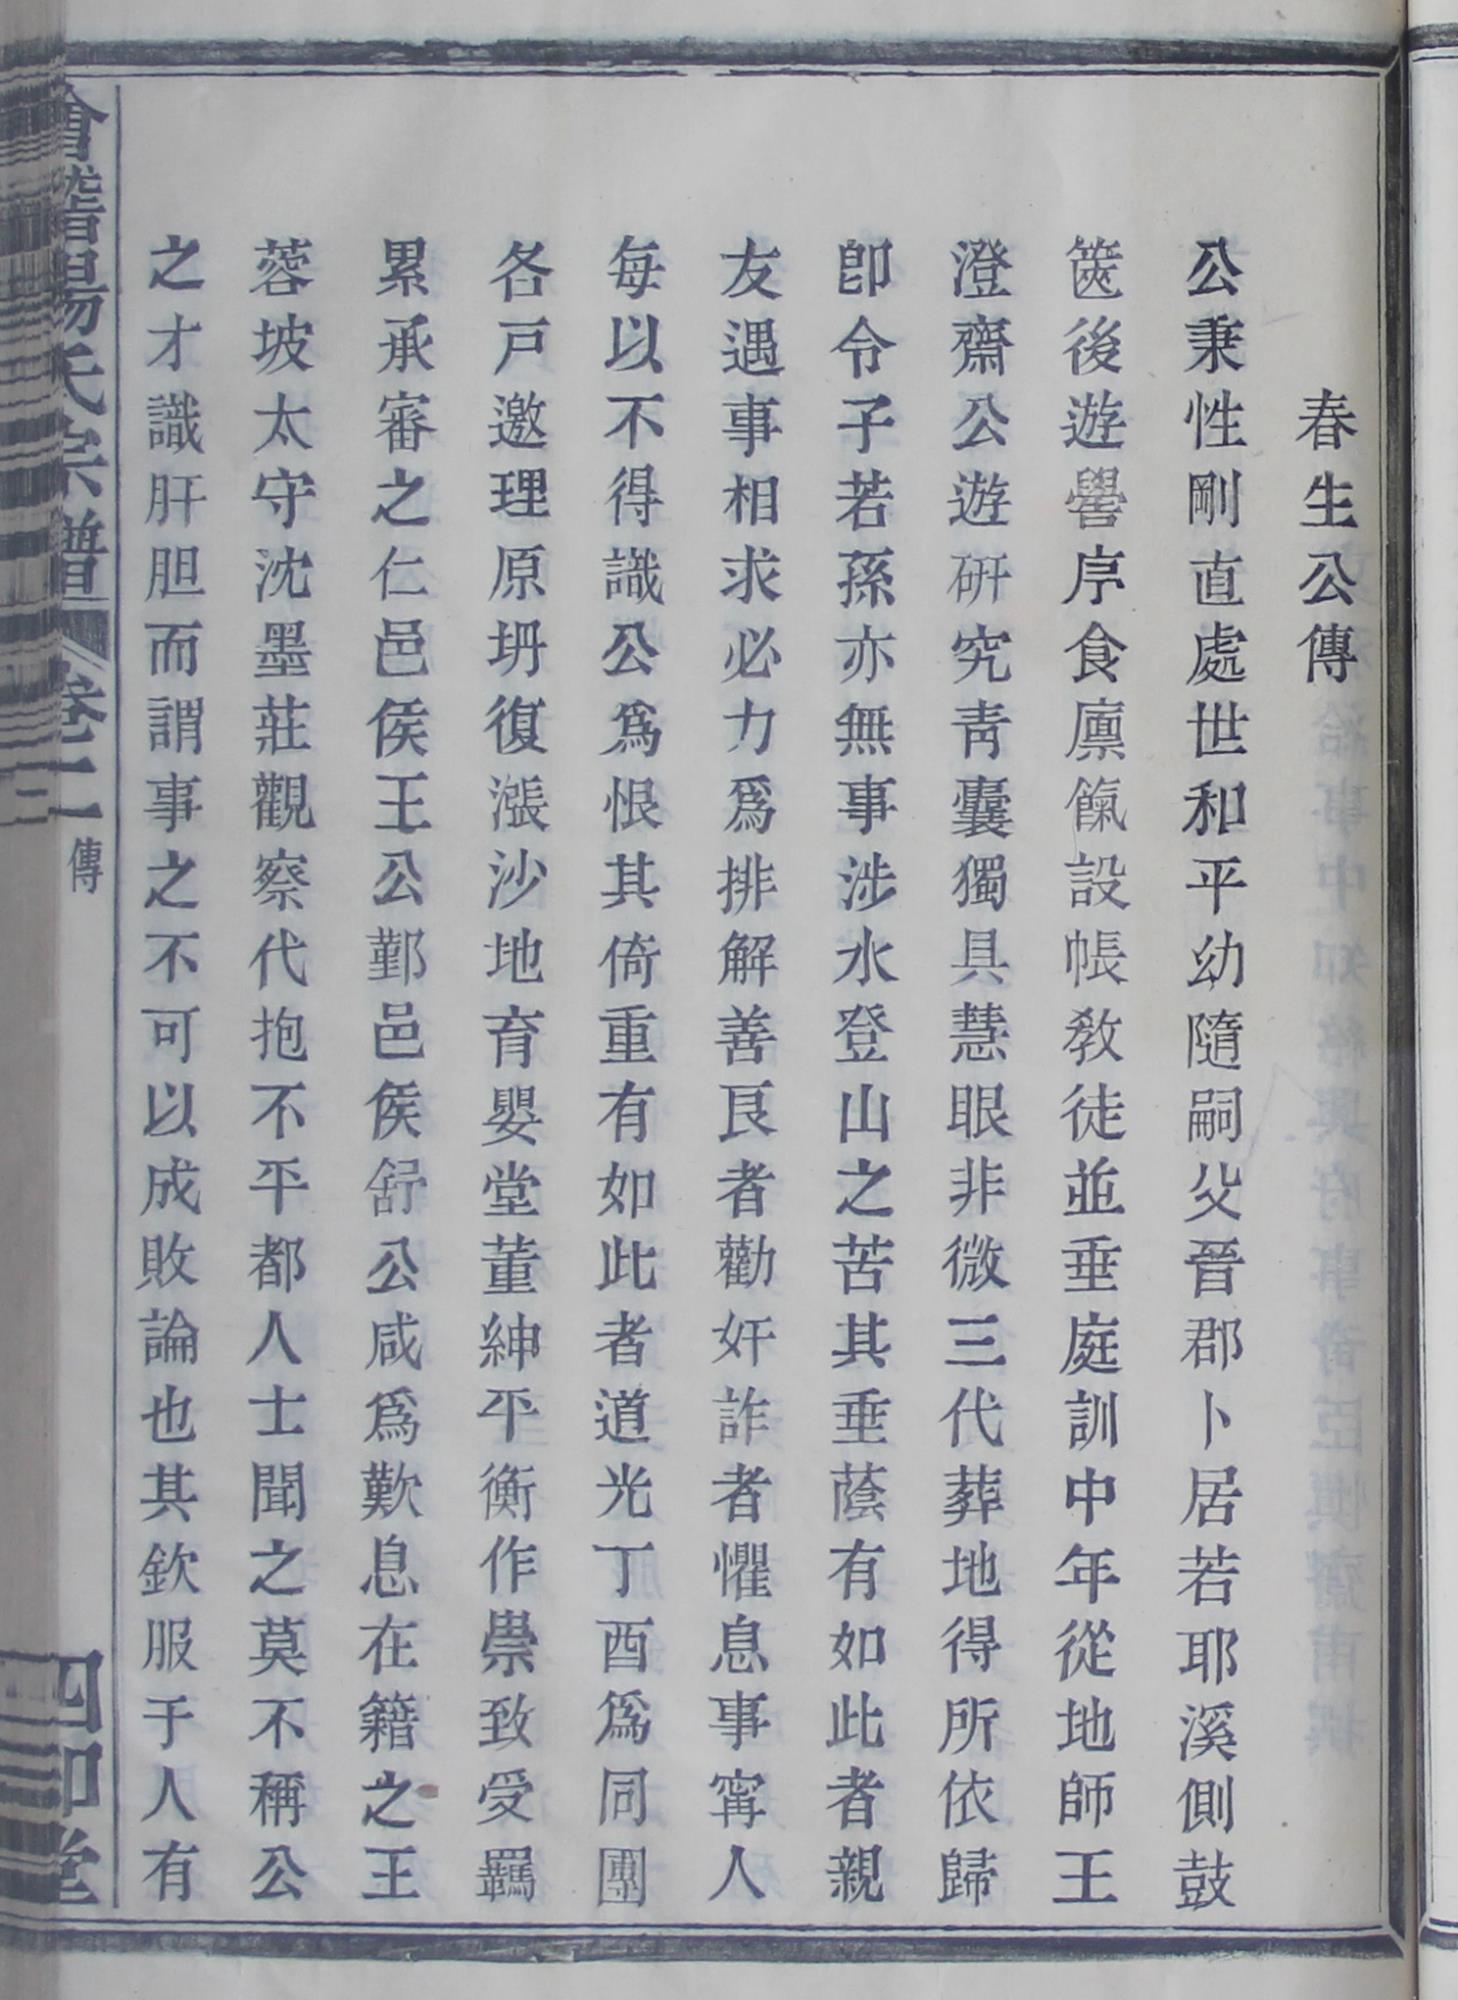 春生公傳
公秉性剛直處世和平幼隨嗣父晉郡卜居若耶溪側鼓
篋後遊黌序食廩餼設帳敎徒並垂庭訓中年從地師王
澄齋公遊硏究靑囊獨具慧眼非微三代葬地得所依歸
卽令子若孫亦無事涉水登山之苦其垂蔭有如此者親
友遇事相求必力爲排解善良者勸奸詐者懼息事甯人
每以不得識公爲恨其倚重有如此者道光丁酉爲同團
各戸邀理原坍復漲沙地育嬰堂董紳平衡作祟致受羈
累承審之仁邑侯王公鄞邑侯舒公咸爲歎息在籍之王
蓉坡太守沈墨莊觀察代抱不平都人士聞之莫不稱公
之才識肝胆而謂事之不可以成敗論也其欽服于人有
會稽楊氏宗譜 卷二 傳 四知堂